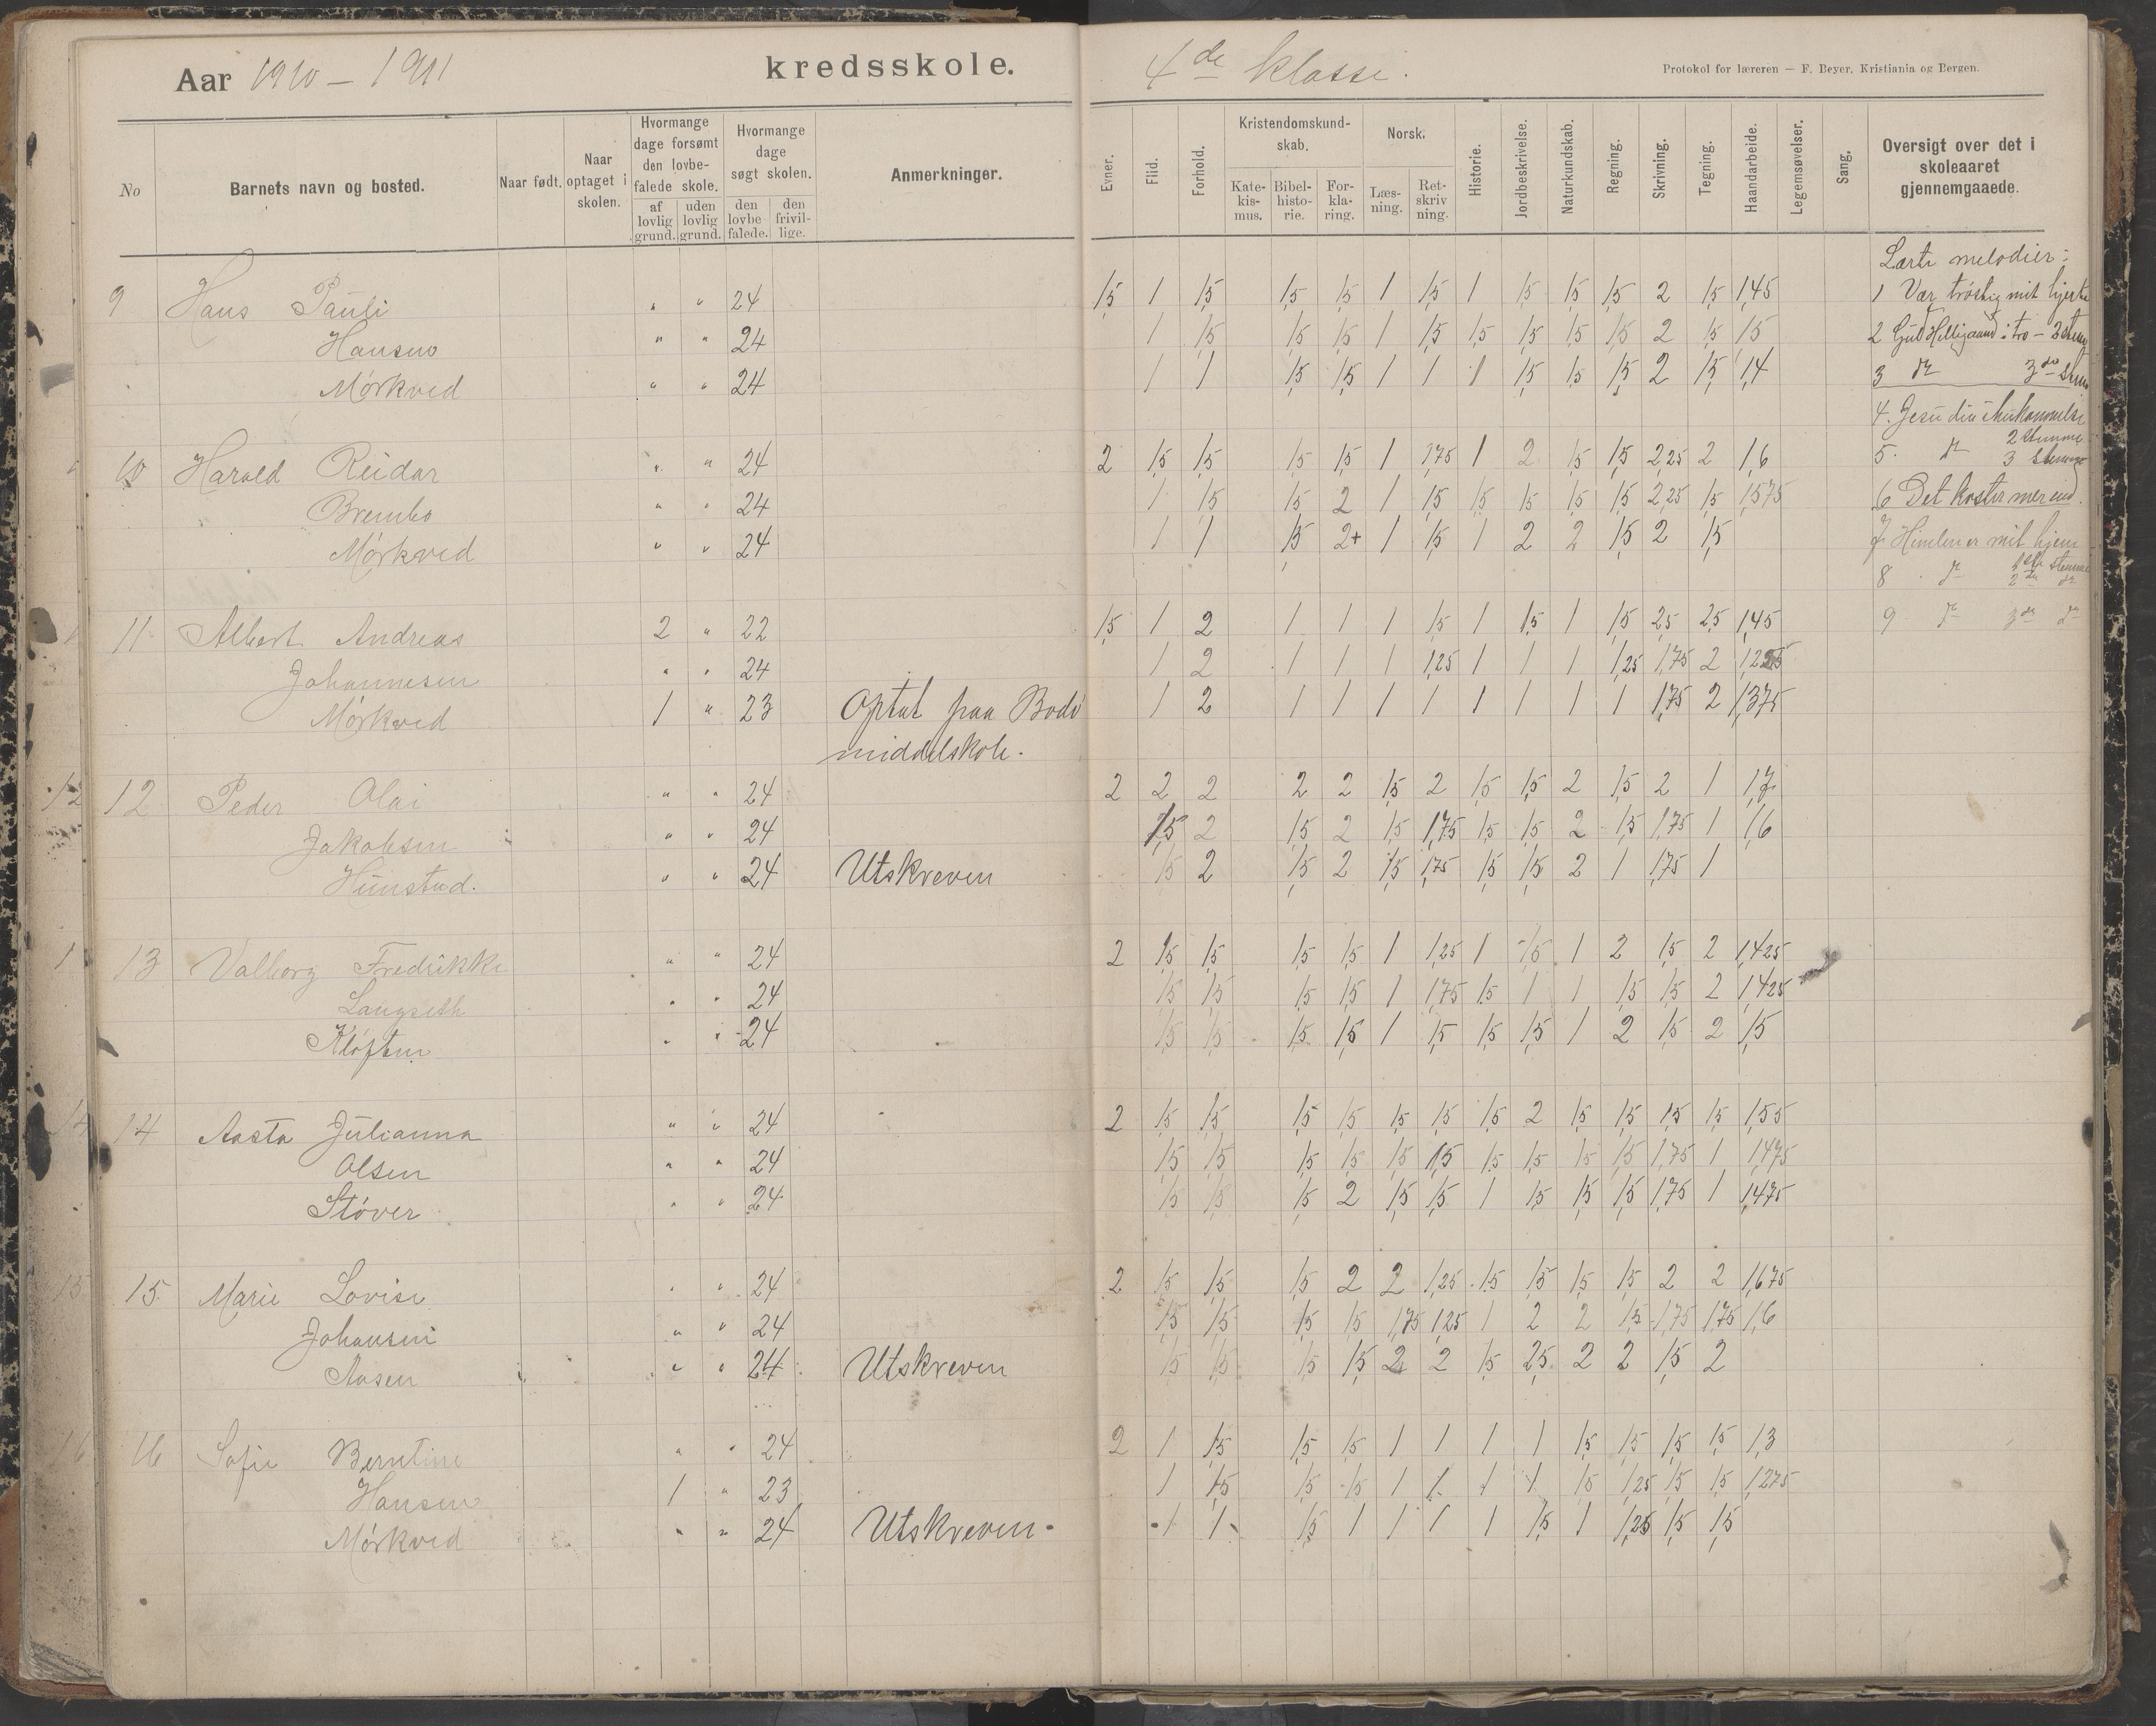 Aar 1910 – 1911 kredsskole. 4de klasse.
Protokol for læreren — F. Beyer, Kristiania og Bergen.
No Barnets navn og bosted. Naar født. Naar optaget i skolen. Hvormange dage forsømt den lovbefalede skole. af lovlig grund. uden lovlig grund. Hvormange dage søgt skolen. den lovbefalede. den frivillige. Anmerkninger.
Evner. Flid. Forhold. Kristendomskundskab. Katekismus. Bibelhistorie. Forklaring. Norsk. Læsning. Retskrivning. Historie. Jordbeskrivelse. Naturkundskab. Regning. Skrivning. Tegning. Haandarbeide. Legemsøvelser. Sang. Oversigt over det i skoleaaret gjennemgaaede.
9 Hans Pauli " " 24 1,5 1 1,5 1,5 1,5 1 1,5 1 1,5 1,5 1,5 2 1,5 1,45
Hansen " " 24 1 1,5 1,5 1,5 1 1,5 1,5 1,5 1,5 1,5 2 1,5 1,5
Mørkved " " 24 1 1 1,5 1,5 1 1 1 1,5 1,5 1,5 2 1,5 1,4
10 Harald Reidar " " 24 2 1,5 1,5 1,5 1,5 1 1,75 1 2 1,5 1,5 2,25 2 1,6
Brembo " " 24 1 1,5 1,5 2 1 1,5 1,5 1,5 1,5 1,5 2,25 1,5 1,575
Mørkved " " 24 1 1 1,5 2+ 1 1,5 1 2 2 1,5 2 1,5
11 Albert Andreas 2 " 22 1,5 1 2 1 1 1 1,5 1 1,5 1 1,5 2,5 2,5 1,45
Johannesen " " 24 1 2 1 1 1 1,25 1 1 1 1,25 1,75 2
Mørkved 1 " 23 Optat paa Bodø 1 2 1 1 1 1 1 1 1 1 1,75 2 1,375
middelskole.
12 Peder Olai " " 24 2 2 2 2 2 1,5 2 1,5 1,5 2 1,5 2 1 1,7
Jakobsen " " 24 1,5 2 1,5 2 1,5 1,75 1,5 1,5 2 1,5 1,75 1 1,6
Hunstad. " " 24 Utskreven 1,5 2 1,5 2 1,5 1,75 1,5 1,5 2 1 1,75 1
13 Valborg Fredrikke " " 24 2 1,5 1,5 1,5 1,5 1 1,25 1 1,5 1 2 1,5 2 1,425
Langseth " " 24 1,5 1,5 1,5 1,5 1 1,75 1,5 1 1 1,5 1,5 2 1,425
Kløften " " 24 1,5 1,5 1,5 1,5 1 1,5 1,5 1,5 1 2 1,5 2 1,5
14 Aasta Julianna " " 24 2 1,5 1,5 1,5 1,5 1,5 1,5 1,5 2 1,5 1,5 1,5 1,5 1,55
Olsen " " 24 1,5 1,5 1,5 1,5 1,5 1,5 1,5 1,5 1,5 1,5 1,75 1 1,475
Støver " " 24 1,5 1,5 1,5 2 1,5 1,5 1 1,5 1,5 1,5 1,75 1 1,475
15 Marie Lovise " " 24 2 1,5 1,5 1,5 2 2 1,25 1,5 1,5 1,5 1,5 2 2 1,675
Johansen " " 24 1,5 1,5 1,5 1,5 1,75 1,25 1 2 2 1,5 1,75 1,75 1,6
Aasen " " 24 Utskreven 1,5 1,5 1,5 1,5 2 2 1,5 2,5 2 2 1,5 2
16 Sofie Berntine " " 24 2 1 1,5 1,5 1,5 1 1 1 1 1,5 1,5 1,5 1,5 1,3
Hansen 1 " 23 1 1,5 1,5 1,5 1 1 1 1 1,5 1,25 1,5 1,5 1,275
Mørkved " " 24 Utskreven. 1 1 1,5 1 1 1 1 1,5 1 1,25 1,5 1,5
Lærte melodier:
1 Vær trøstig mit hjerte
2 Gud Helligaand i tro – 2 stem
3 do 3de stem
4. Jesu din ihukommelse
2 stemme
5. do 3 stemme
6 Det koster mer end
7 Himlen er mit hjem
1ste stemme
8 do 2de do
9 do 3de do